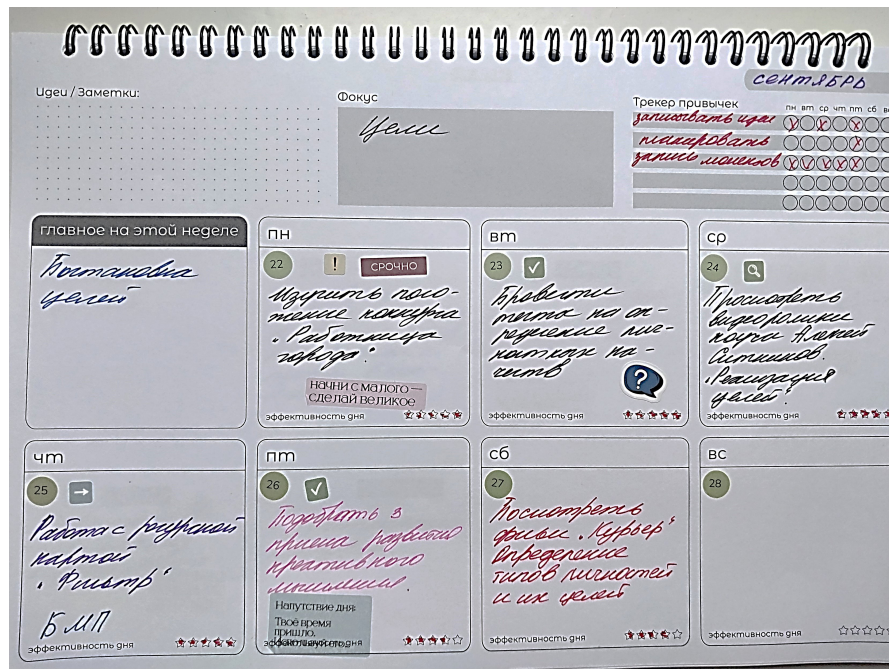 сентябрь
Идеи / Заметки:
Фокус
Цели
Трекер привычек
пн вт ср чт пт сб вс
записывать идеи
планировать
запись моментов
главное на этой неделе
Постановка
целей
пн
22
!
СРОЧНО
Изучить поло-
жение конкурса
„Работница
города".
начни с малого —
сделай великое
эффективность дня
вт
23
Провести
теста на оп-
ределение лич-
ностных ка-
честв
?
эффективность дня
ср
24
Просмотреть
видеоролики
коуча Алексей
Ситников.
„Реализация
целей".
эффективность дня
чт
25
Работа с ресурсной
картой
„Фильтр"
БМП
эффективность дня
пт
26
Подобрать 3
приема развитию
креативного
мышления
Напутствие дня:
Твоё время
пришло.
эффективность дня
сб
27
Посмотреть
фильм „Курьер"
Определение
типов личностей
и их целей
эффективность дня
вс
28
эффективность дня